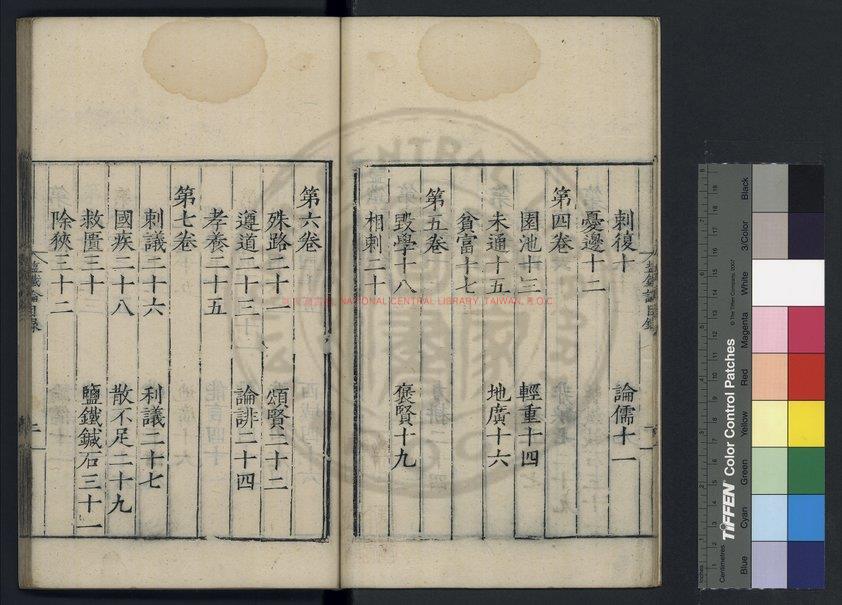 刺復十 論儒十一
憂邊十二
第四卷
園池十三 輕重十四
未通十五 地廣十六
貧富十七
第五卷
毀學十八 褒賢十九
相刺二十
第六卷
殊路二十一 頌賢二十二
遵道二十三 論誹二十四
孝養二十五
第七卷
刺議二十六 利議二十七
國疾二十八 散不足二十九
救匱三十 鹽鐵鍼石三十一
除狹三十二
NATIONAL CENTRAL LIBRARY, TAIWAN, R.O.C
TIFFEN Color Control Patches
© The Tiffen Company, 2007
Centimetres
Inches
Blue
Cyan
Green
Yellow
Red
Magenta
White
3/Color
Black